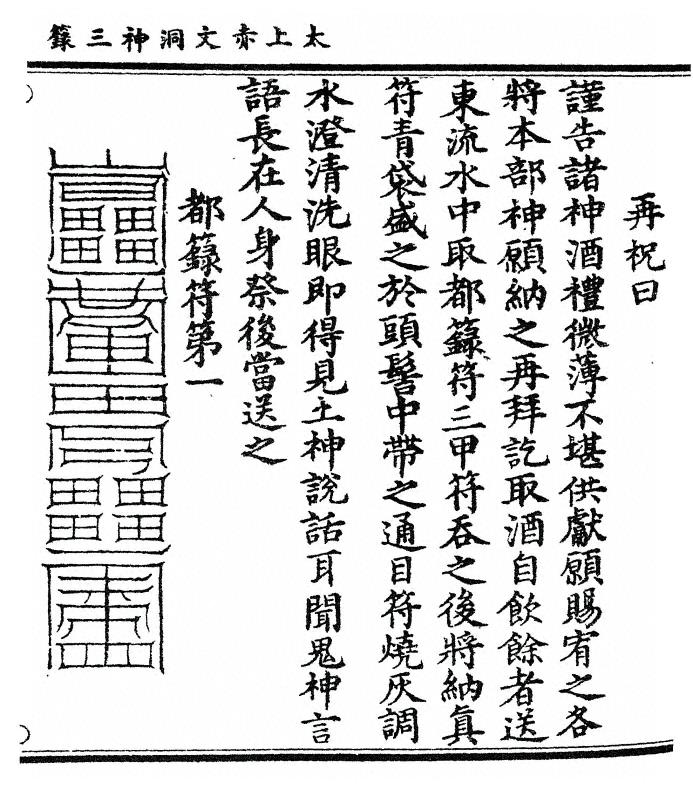 太上赤文洞神三籙
再祝曰
謹告諸神酒禮微薄不堪供獻願賜宥之各
將本部神願納之再拜訖取酒自飲餘者送
東流水中取都籙符三甲符吞之後將納真
符青袋盛之於頭髻中帶之通目符燒灰調
水澄清洗眼即得見土神說話耳聞鬼神言
語長在人身祭後當送之
都籙符第一